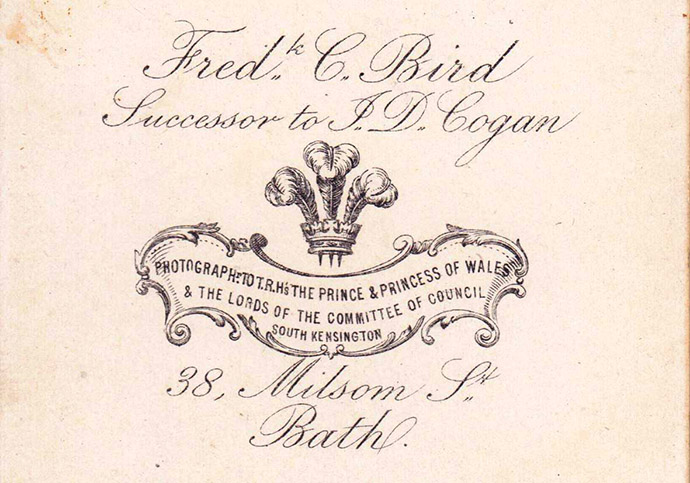 Fredk. C. Bird
Successor to J. D. Cogan
PHOTOGRAPHR. TO T.R.HS. THE PRINCE & PRINCESS OF WALES
& THE LORDS OF THE COMMITTEE OF COUNCIL
SOUTH KENSINGTON
38, Milsom St.
Bath.